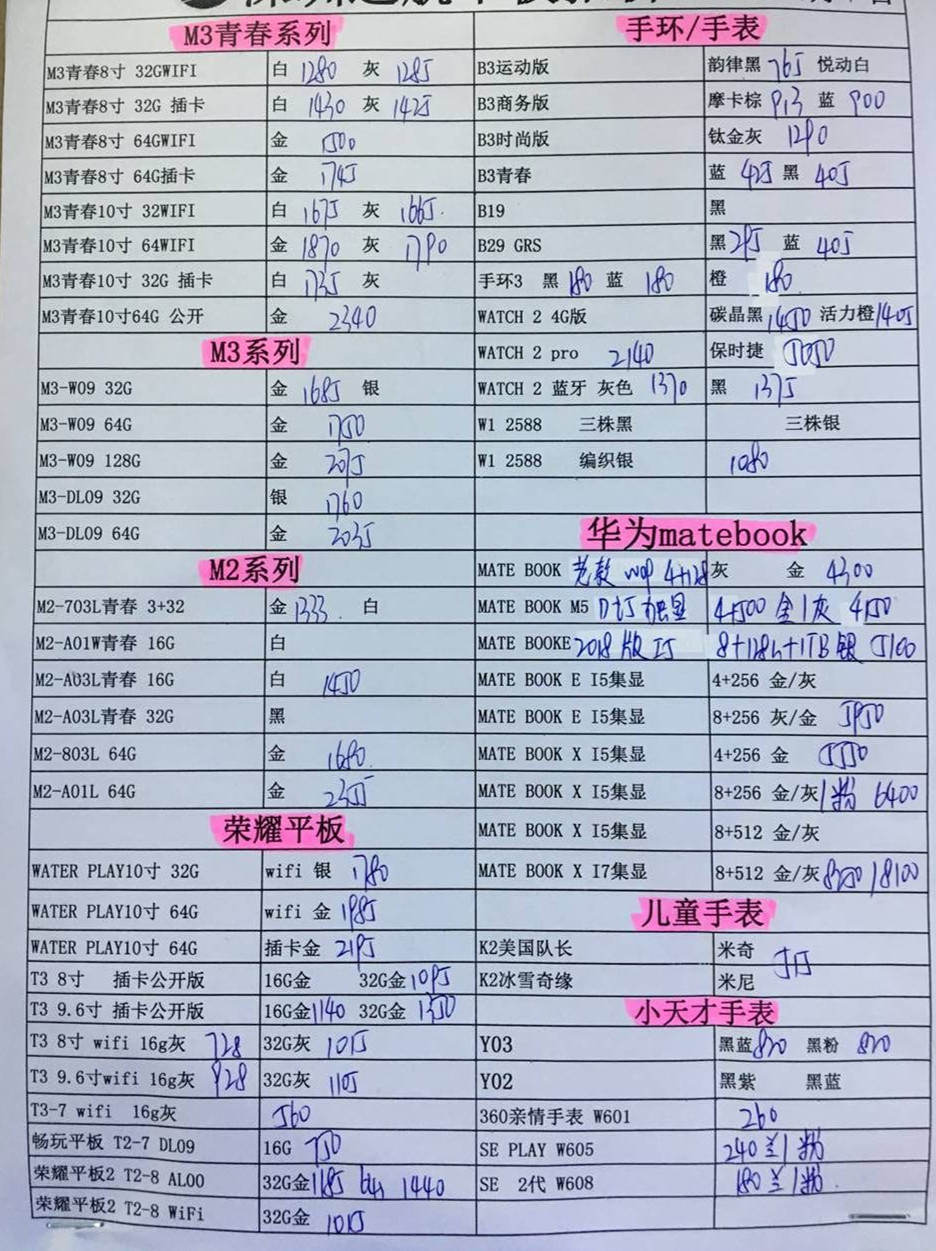 M3青春系列
M3青春8寸 32GWIFI 白 1280 灰 1285
M3青春8寸 32G 插卡 白 1430 灰 1425
M3青春8寸 64GWIFI 金 1500
M3青春8寸 64G插卡 金 1745
M3青春10寸 32WIFI 白 1675 灰 1665
M3青春10寸 64WIFI 金 1870 灰 1790
M3青春10寸 32G 插卡 白 1735 灰
M3青春10寸64G 公开 金 2340
M3系列
M3-W09 32G 金 1685 银
M3-W09 64G 金 1750
M3-W09 128G 金 2075
M3-DL09 32G 银 1760
M3-DL09 64G 金 2035
M2系列
M2-703L青春 3+32 金 1333 白
M2-A01W青春 16G 白
M2-A03L青春 16G 白 1450
M2-A03L青春 32G 黑
M2-803L 64G 金 1680
M2-A01L 64G 金 2355
荣耀平板
WATER PLAY10寸 32G wifi 银 1780
WATER PLAY10寸 64G wifi 金 1985
WATER PLAY10寸 64G 插卡金 2195
T3 8寸 插卡公开版 16G金 32G金 1095
T3 9.6寸 插卡公开版 16G金 1140 32G金 1350
T3 8寸 wifi 16g灰 728 32G灰 1015
T3 9.6寸wifi 16g灰 928 32G灰 1105
T3-7 wifi 16g灰 560
畅玩平板 T2-7 DL09 16G 750
荣耀平板2 T2-8 AL00 32G金 1185 64 1440
荣耀平板2 T2-8 WiFi 32G金 1015
手环/手表
B3运动版 韵律黑 765 悦动白
B3商务版 摩卡棕 913 蓝 900
B3时尚版 钛金灰 1290
B3青春 蓝 425 黑 405
B19 黑
B29 GRS 黑 295 蓝 405
手环3 黑 180 蓝 180 橙 180
WATCH 2 4G版 碳晶黑 1450 活力橙 1405
WATCH 2 pro 2140 保时捷 5050
WATCH 2 蓝牙 灰色 1370 黑 1375
W1 2588 三株黑 三株银
W1 2588 编织银 1080
华为matebook
MATE BOOK 老款 4+128 灰 金 4300
MATE BOOK M5 独显 4+500 金/灰 4150
MATE BOOKE 2018版 I5 8+128G+1TB 银 5100
MATE BOOK E I5集显 4+256 金/灰
MATE BOOK E I5集显 8+256 灰/金 5950
MATE BOOK X I5集显 4+256 金 5550
MATE BOOK X I5集显 8+256 金/灰/粉 6400
MATE BOOK X I5集显 8+512 金/灰
MATE BOOK X I7集显 8+512 金/灰 8250/8100
儿童手表
K2美国队长 米奇 515
K2冰雪奇缘 米尼
小天才手表
Y03 黑蓝 820 黑粉 820
Y02 黑紫 黑蓝
360亲情手表 W601 260
SE PLAY W605 240 兰/粉
SE 2代 W608 180 兰/粉